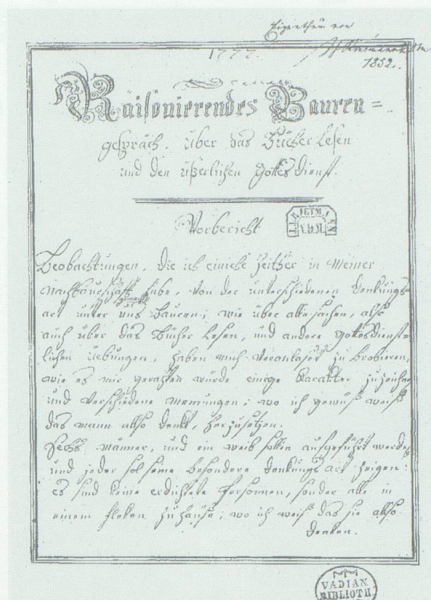 Eigenthum von
1777.
1852.
Raisonierendes Bauren=
gespräch. über das Bücher Lesen
und den üßerlichen Gottesdienst.
Vorbericht
Beobachtungen, die ich einiche Zeither in Meiner
Nachbaurschafft habe, von der unterschiedenen denkungs
art unter uns Bauren; wie über alle sachen, also
auch über das Bücher Lesen, und andere gottesdienst-
lichen uebungen, haben mich veranlaset zu brobieren,
wie es mir gerathen wurde einige Karakter zu zeichnen
und verschiedene meinungen; wo ich gewüß weiß
das mann allso denkt, herzusetzen;
Sechs männer, und ein weib sollen aufgeführt werden
und jeder sol seine besondere denkungs art zeigen:
es sind keine erdichtete Personnen, sonder alle in
einem fleken zu hause; wo ich weiß das sie allso
denken.
VADIAN
BIBLIOTH